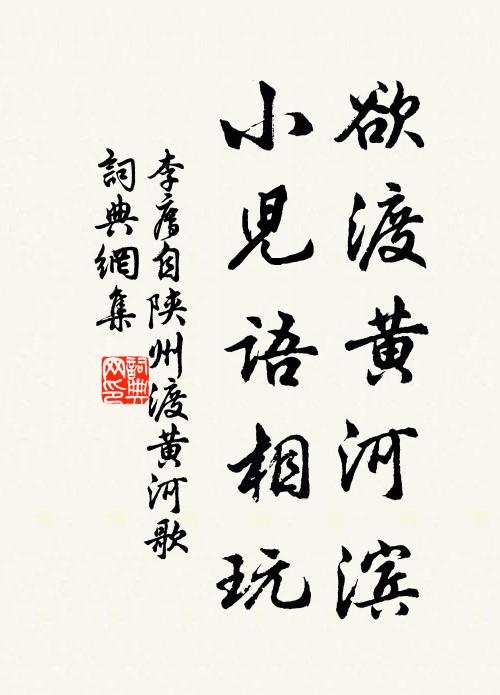 欲渡黄河滨
小児语相玩
李廌自陕州渡黄河歌
詞典網集
詞典网印